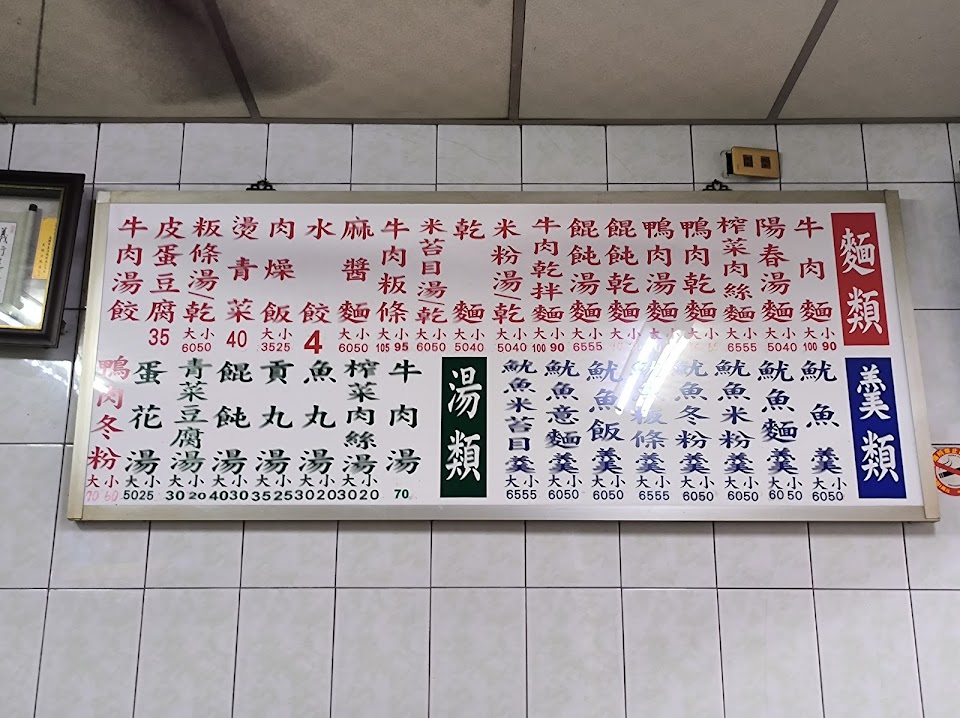 麵類
牛肉麵 大小 100 90
陽春湯麵 大小 5040
榨菜肉絲麵 大小 6555
鴨肉乾麵 大小
鴨肉湯麵 大小
餛飩乾麵 大小
餛飩湯麵 大小 6555
牛肉乾拌麵 大小 100 90
米粉湯/乾 大小 5040
乾麵 大小 5040
米苔目湯/乾 大小 6050
牛肉粄條 大小 105 95
麻醬麵 大小 6050
水餃 4
肉燥飯 大小 3525
燙青菜 40
粄條湯/乾 大小 6050
皮蛋豆腐 35
牛肉湯餃
羹類
魷魚羹 大小 6050
魷魚麵羹 大小 6050
魷魚米粉羹 大小 6050
魷魚冬粉羹 大小 6050
魷魚粄條羹 大小 6555
魷魚飯羹 大小 6050
魷魚意麵羹 大小 6050
魷魚米苔目羹 大小 6555
湯類
牛肉湯 70
榨菜肉絲湯 大小 3020
魚丸湯 大小 3020
貢丸湯 大小 3525
餛飩湯 大小 4030
青菜豆腐湯 大小 30 20
蛋花湯 大小 5025
鴨肉冬粉 大小 70 60